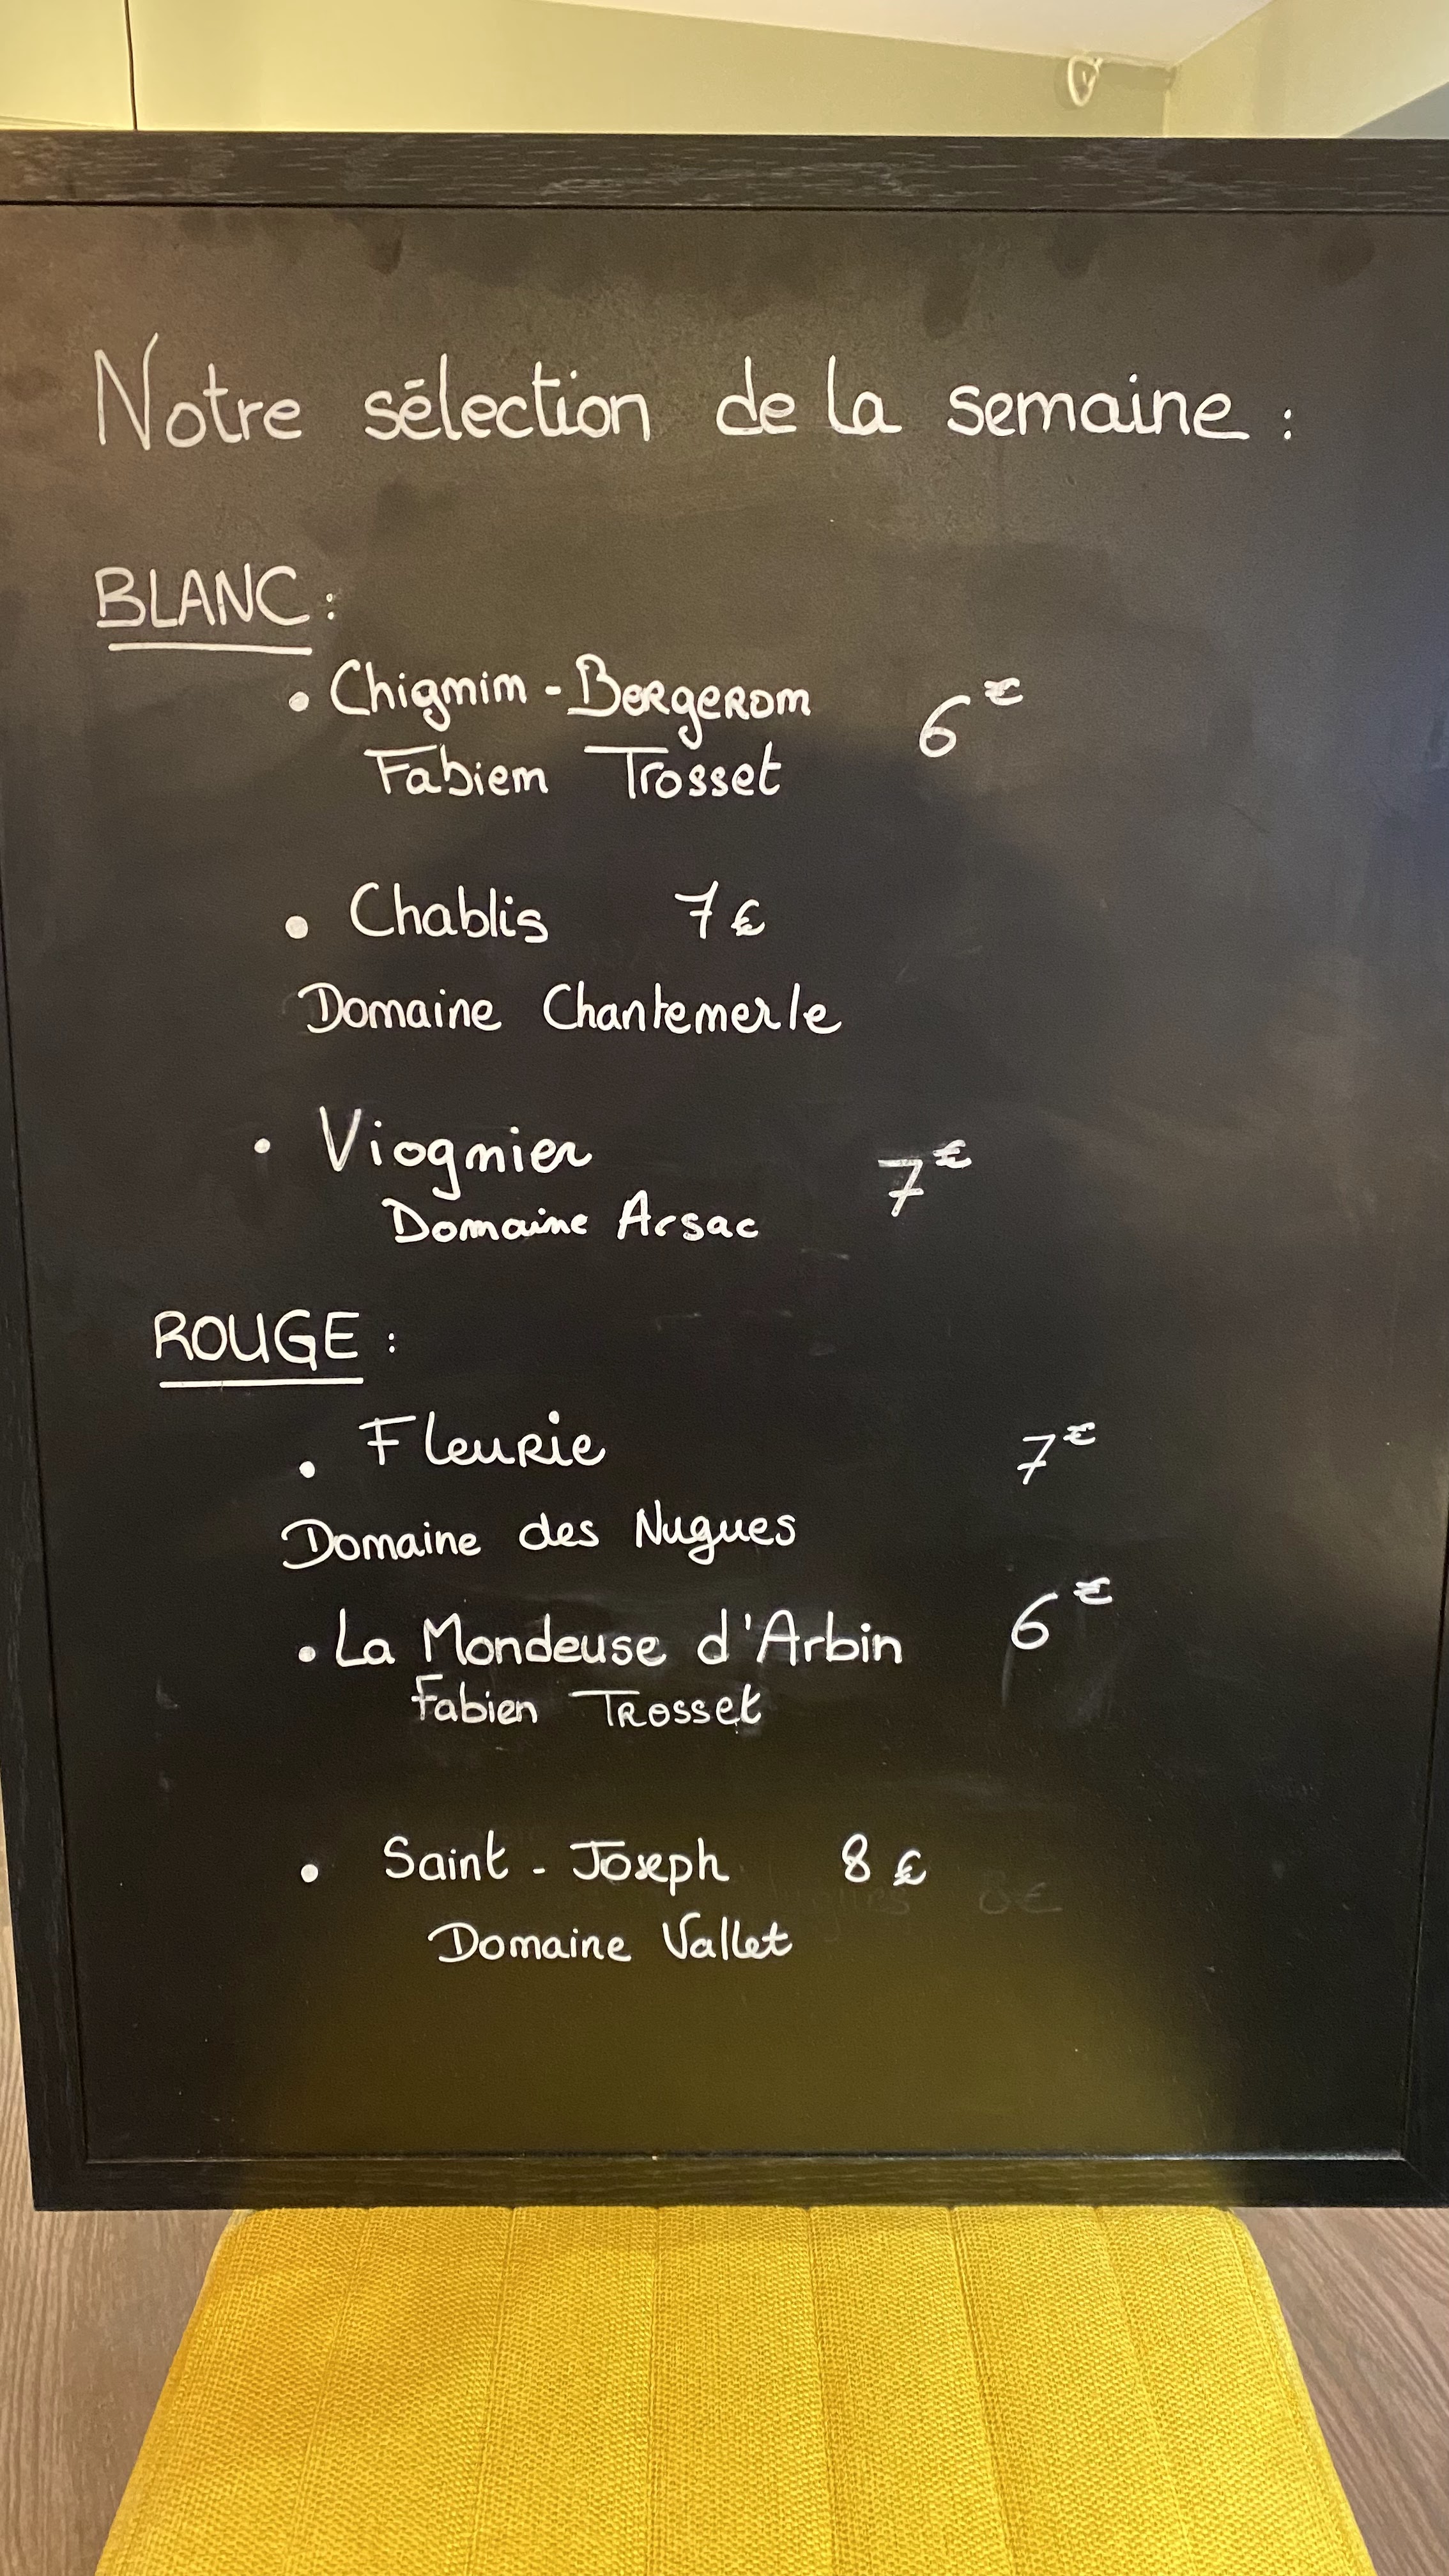 Notre sélection de la semaine :
BLANC :
• Chignin - Bergeron 6€
Fabien Trosset
• Chablis 7€
Domaine Chantemerle
• Viognier 7€
Domaine Arsac
ROUGE :
• Fleurie 7€
Domaine des Nugues
• La Mondeuse d'Arbin 6€
Fabien Trosset
• Saint - Joseph 8€
Domaine Vallet